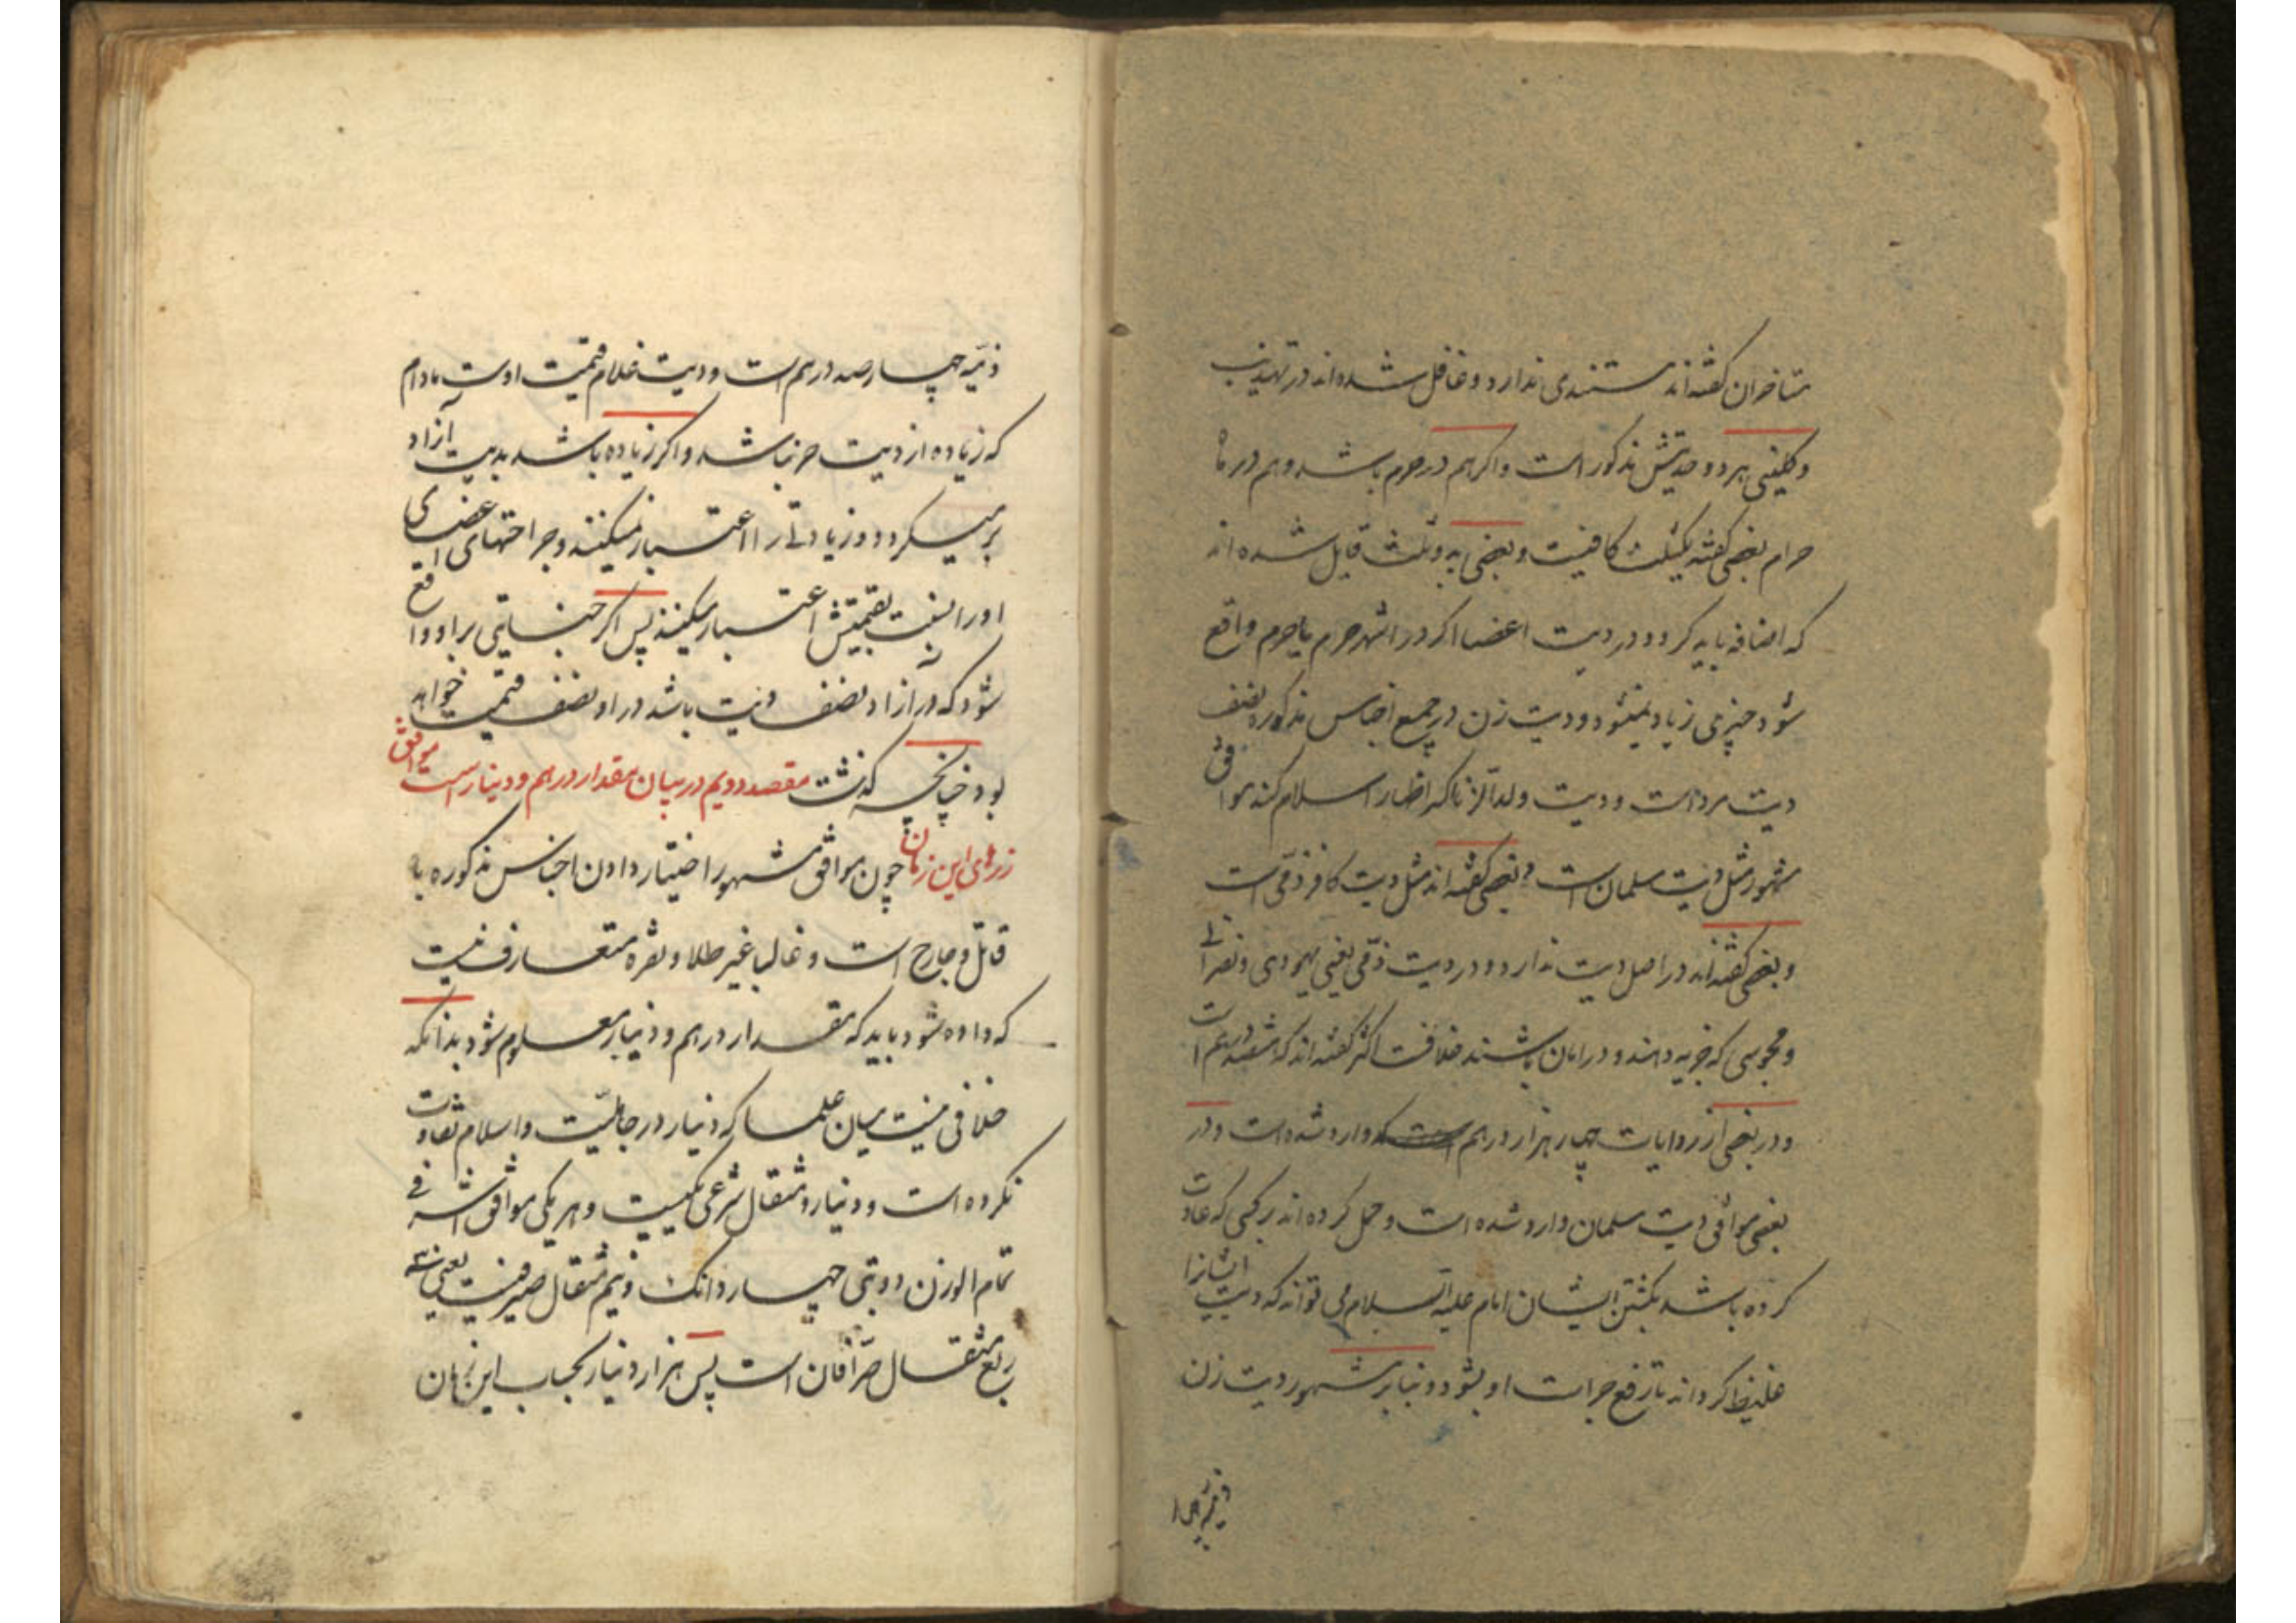 متاخران گفته‌اند مستندی ندارد و غافل شده‌اند در تهذیب
و کلینی هر دو حدیثش مذکور است و اگر هم در حرم باشد و هم در ماه
حرام بعضی گفته یکثلث کافیست و بعضی به دو ثلث قایل شده اند
که اضافه باید کرد و در دیت اعضا اگر در اشهر حرم یا حرم واقع
شود چیزی زیاد نمیشود و دیت زن در جمیع اجناس مذکوره نصف
دیت مرد است و دیت ولد الزنا که اظهار اسلام کند موافق
مشهور مثل دیت مسلمان است و بعضی گفته اند مثل دیت کافر ذمّی است
و بعضی گفته‌اند در اصل دیت ندارد و در دیت ذمّی یعنی یهودی و نصرانی
و مجوسی که جزیه دهند و در امان باشند خلافست اکثر گفته‌اند که هشتصد درهم است
و در بعضی از روایات چهار هزار درهم وارد شده است و در
بعضی موافق دیت مسلمان وارد شده است و حمل کرده اند بر کسی که عادت
کرده باشد بکشتن ایشان امام علیه السلام می تواند که دیت ایشانرا
غلیظ گرداند تا رفع جرات او بشود و بنابر مشهور دیت زن
ذمیه چهار
ذمّیه چهار صد درهم است و دیت غلام قیمت اوست مادام
که زیاده از دیت حر نباشد و اگر زیاده باشد بدیت آزاد
بر میگردد و زیادتی را اعتبار نمیکنند و جراحتهای اعضای
او را بنسبت بقیمتش اعتبار میکنند پس اگر جنایتی بر او واقع
شود که در آزاد نصف دیت باشد در او نصف قیمت خواهد
بود چنانچه گذشت مقصد دویم در بیان مقدار درهم و دینار است موافق
زرهای این زمان چون موافق مشهور اختیار دادن اجناس مذکوره با
قاتل و جارح است و غالبا غیر طلا و نقره متعارف نیست
که داده شود باید که مقدار درهم و دینار معلوم شود بدانکه
خلافی نیست میان علما که دینار در جاهلیّت و اسلام تفاوت
نکرده است و دینار و مثقال شرعی یکیست و هر یکی موافق اشرفی
تمام الوزن دوبتی چهار دانک و نیم مثقال صیرفیست یعنی سه
ربع مثقال صرّافان است پس هزار دینار بحساب این زمان